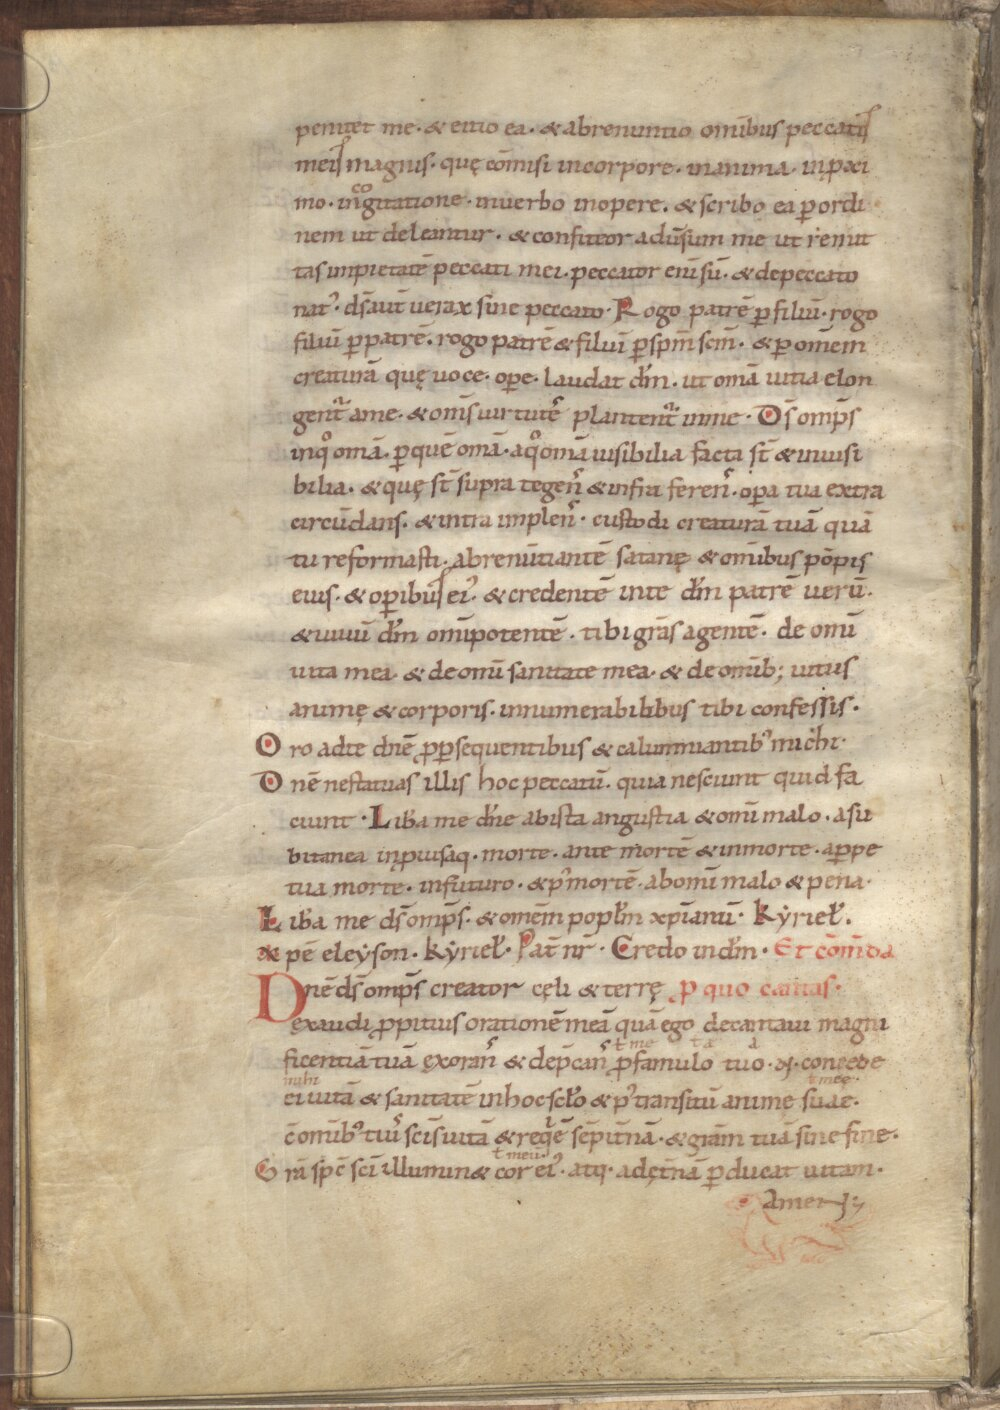 penitet me · & eitio ea · & abrenuntio omībus peccatis
meis magnis · quę cōmisi incorpore · inanima · inꝓxi
mo · incogitatione · inuerbo inopere · & scribo ea ꝑordi
nem ut deleantur · & confiteor aduersum me ut remit
tas impietatē peccati mei · peccator enī sū · & depeccato
nat᾿ · ds̄ aut̄ uerax sine peccato · Rogo patrē ꝑ filiū · rogo
filiū ꝑ patrē · rogo patrē & filiū ꝑ spm̄ scm̄ · & ꝑ omēm
creaturā quę uoce · oꝑe · laudat dm̄ · ut omā uitia elon
gent᾿ ame · & oms̄ uirtutes plantent᾿ inme · Ds̄ omps̄
inqͦ omā · ꝑ quē omā · aqͦ omā uisibilia facta st̄ & inuisi
bilia · & quę st̄ supra tegens̄ & infra ferens̄ · oꝑa tua extra
circūdans · & intra implens̄ · custodi creaturā tuā quā
tu reformasti · abrenūtiantē satanę & omībus pōpis
eius · & oꝑibus ei᾿ · & credentē inte dm̄ patrē uerū ·
& uiuū dm̄ omīpotentē · tibi grās agentē · de omī
uita mea · & de omī sanitate mea · & de omīb; uitiis
animę & corporis · innumerabilibus tibi confessis ·
Oro adte dnē ꝓ ꝑsequentibus & calumniantib᾿ michi ·
Dnē nestatuas illis hoc peccatū · quia nesciunt quid fa
ciunt · Liba me dn̄e abista angustia & omī malo · asu
bitanea inꝓuisaq · morte · ante mortē & inmorte · aꝑpe
tua morte · infuturo · & p᾿ mortē · abomī malo & pena ·
Liba me ds̄ omps̄ · & omēm poplm̄ xpianū · Kyriel̄ ·
xpē eleyson · Kyriel̄ · Pat̄ nr̄ · Credo indm̄ · Et cōmda
Dnē ds̄ omps̄ creator cęli & terrę ꝓ quo cantas ·
exaudi ꝓpitius orationē meā quā ego decantaui magni
ł me ł a a
ficentiā tuā ęxorans̄ & dep̄cans̄ ꝓ famulo tuo · N · concede
mihi ł meę
ei uitā & sanitatē inhoc scl̄o & p᾿ transitū animę suae ·
c̄ omīb᾿ tuis̄ scīs uitā & requiē sēpit̄nā · & gl̄am tuā sine fine ·
ł meū
Grā spc̄ scī illumin& cor ei᾿ · atq · adęt̄nā ꝑducat uitam ·
Amen ;